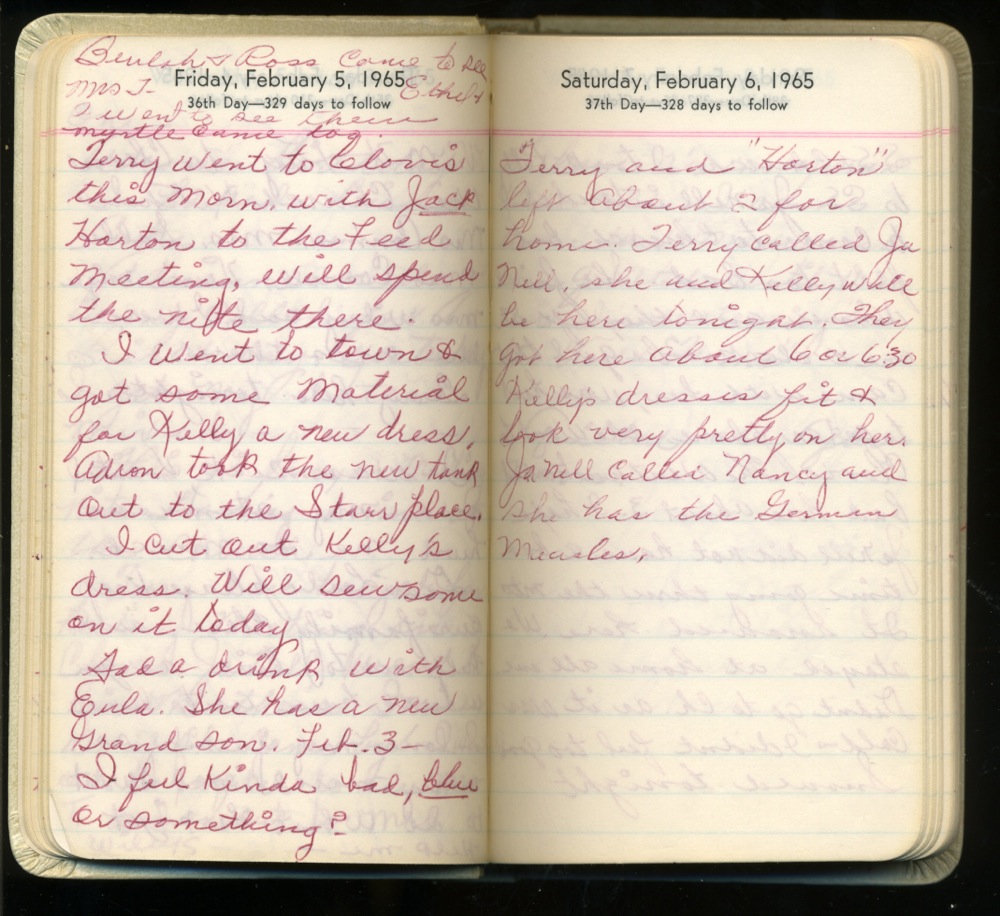 Beulah & Ross Came to see
Mrs T- Ethel &
Friday, February 5, 1965
36th Day—329 days to follow
I went to see them
myrtle Came too.
Terry Went to Clovis
this Morn. with Jack
Horton to the Feed
Meeting, will spend
the nite there.
I Went to town &
got some Material
for Kelly a new dress.
Adron took the new tank
out to the Starr place.
I Cut out Kelly's
dress. Will sew some
on it today
Had a drink with
Eula. She has a new
Grand son. Feb. 3-
I feel Kinda bad, blue
or something?
Saturday, February 6, 1965
37th Day—328 days to follow
Terry and "Horton"
left About 2 for
home. Terry called Ja
Nell, she and Kelly will
be here tonight. They
got here About 6 or 6:30
Kelly's dresses fit &
look very pretty on her.
JaNell Called Nancy and
she has the German
Measles.